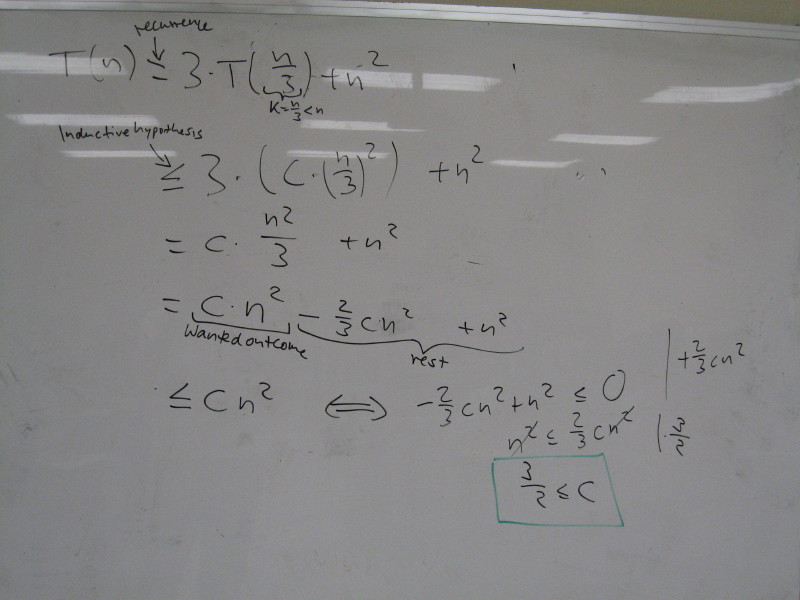 recurrence
T(n) ≤ 3·T(n/3) + n²
K=n/3<n
Inductive hypothesis
≤ 3·(C·(n/3)²) + n²
= C· n²/3 + n²
= C·n² - 2/3 cn² + n²
Wanted outcome rest
≤ Cn² ⟺ -2/3 cn² + n² ≤ 0 | +2/3 cn²
n² ≤ 2/3 cn² | ·3/2
3/2 ≤ C